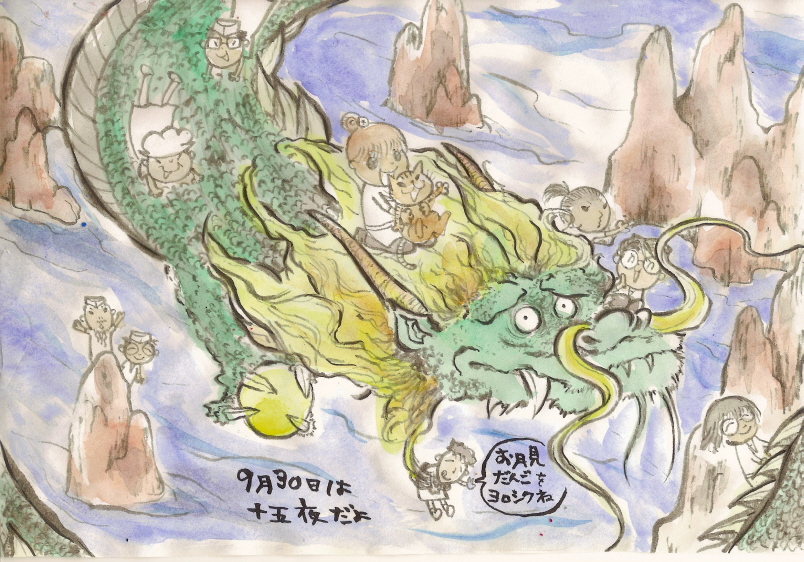 9月30日は
十五夜だよ
お月見
だんごを
ヨロシクね